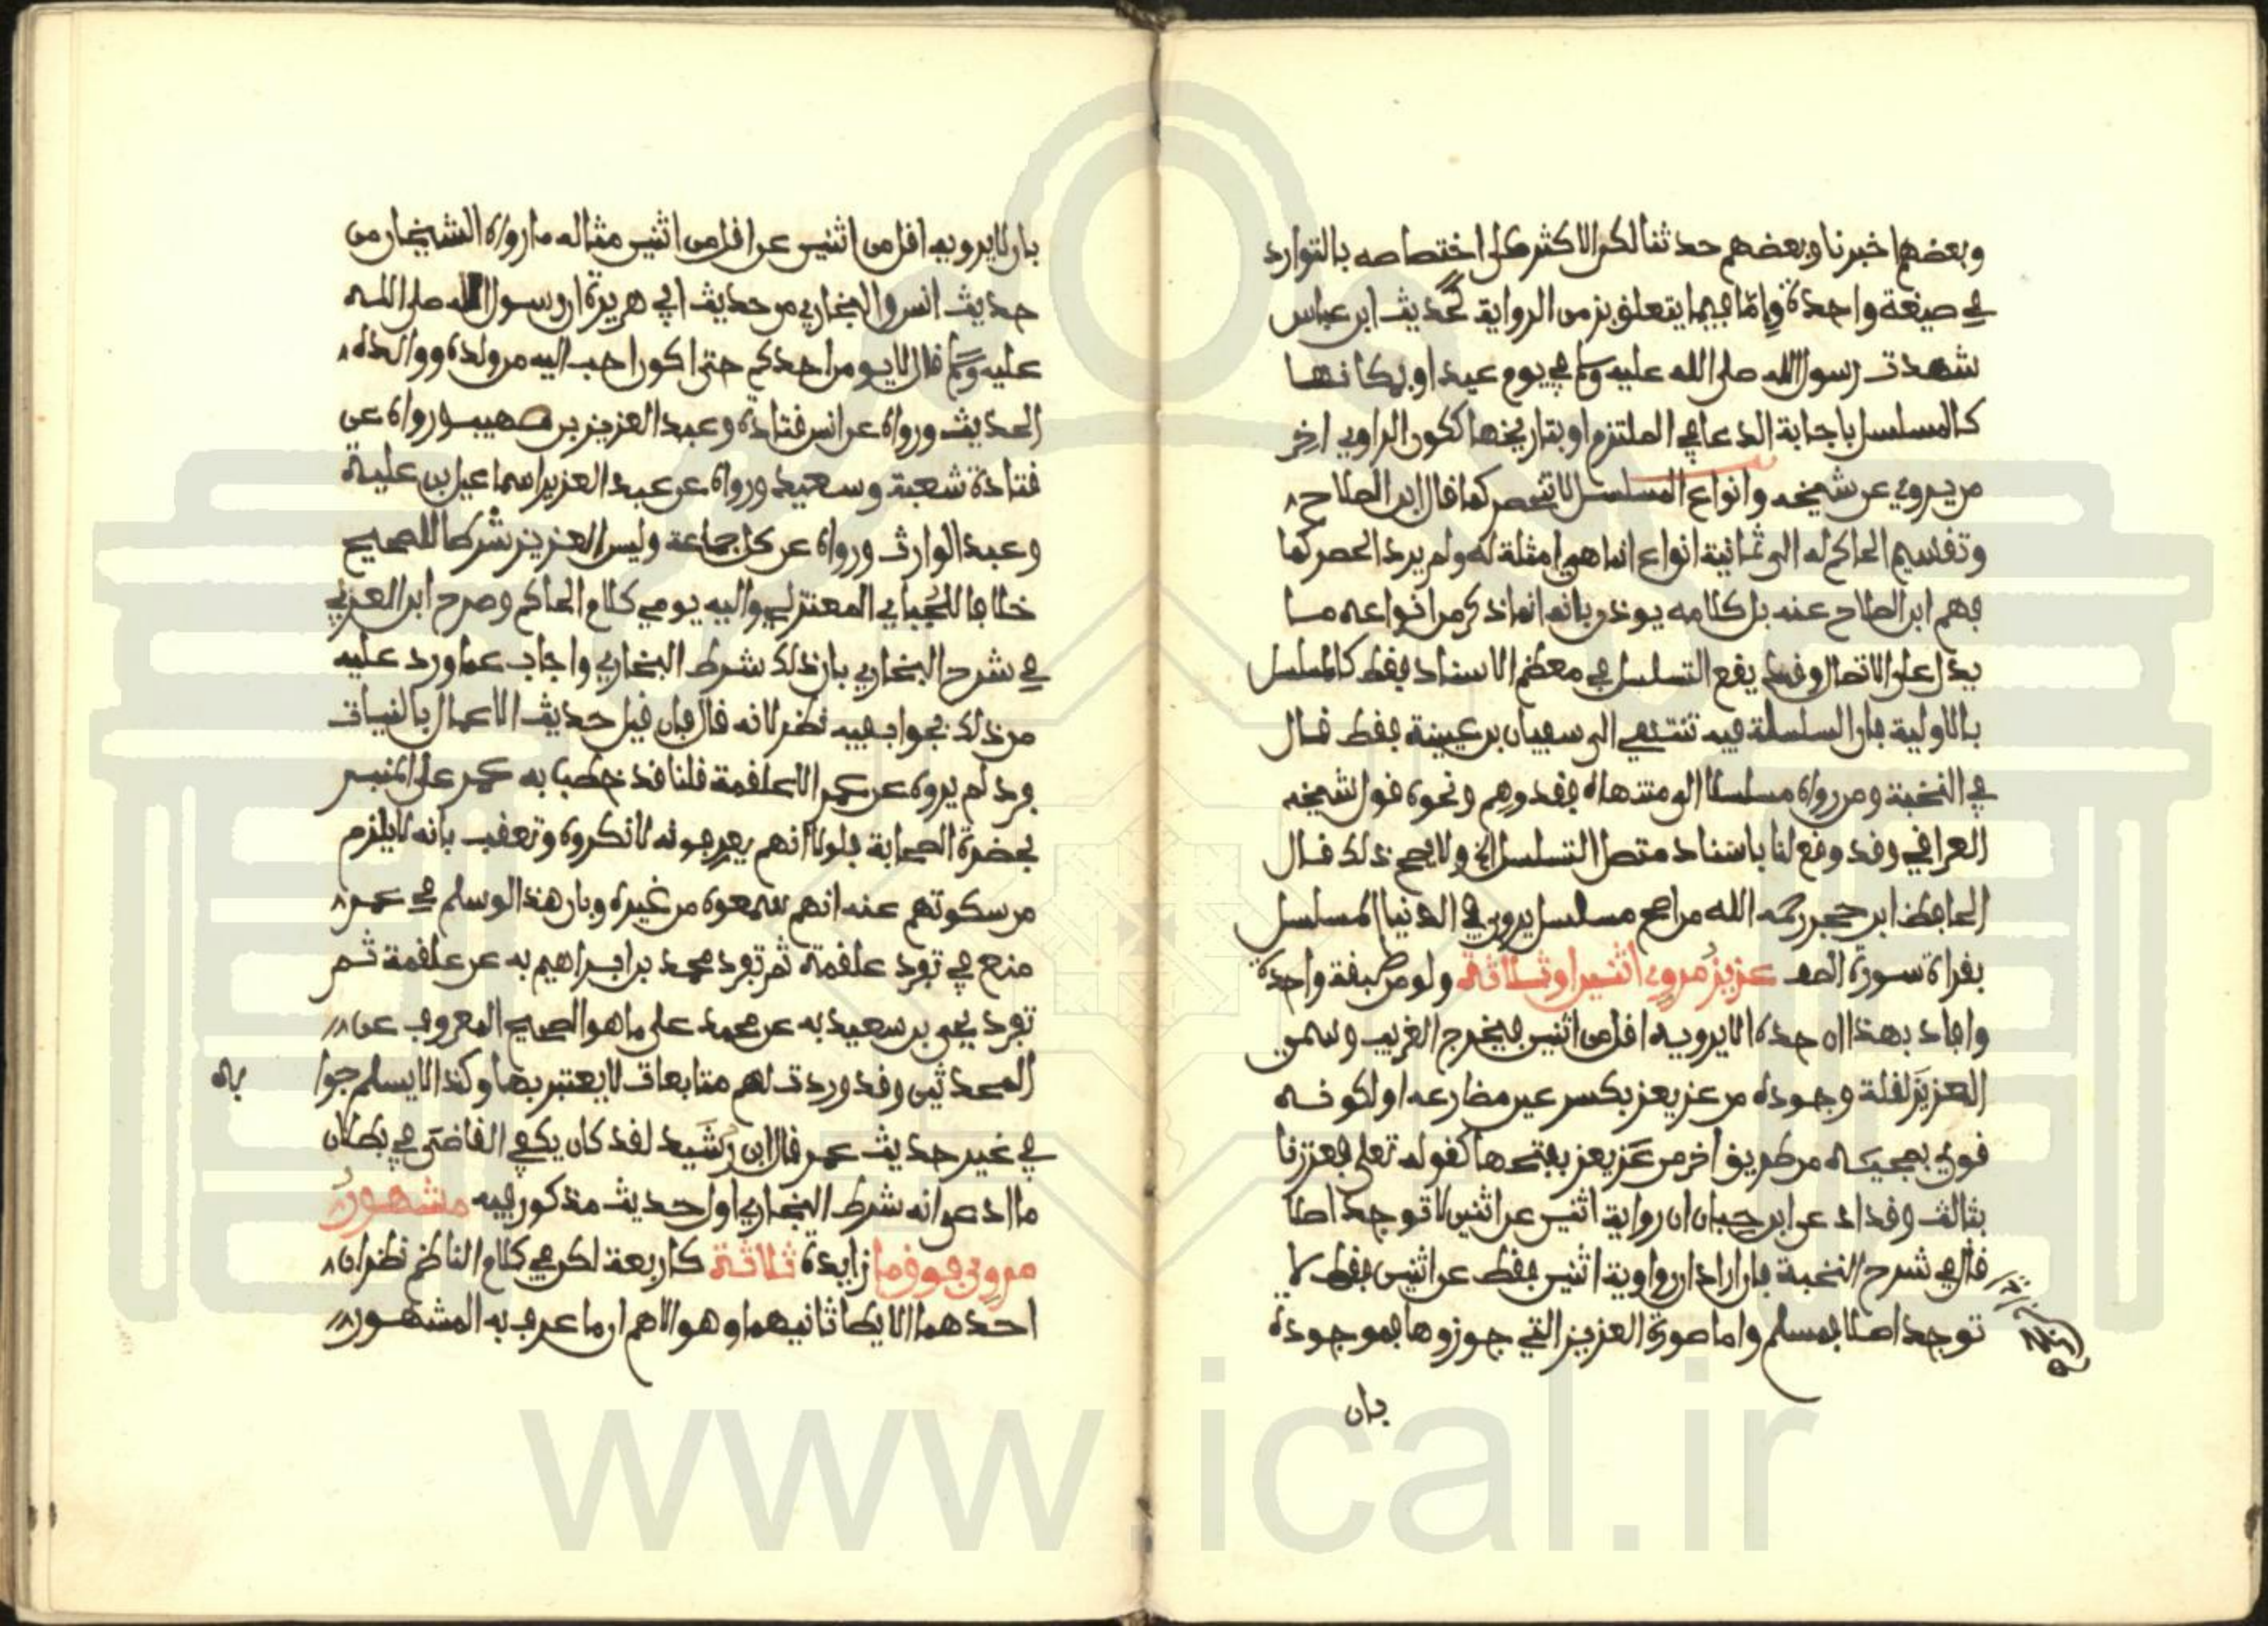 وبعضهم اخبرنا وبعضهم حدثنا لكن الاكثر على اختصاصه بالتوارد
في صيغة واحدة وإمّا فيما يتعلق بزمن الرواية كحديث ابن عباس
شهدت رسول الله صلى الله عليه وسلم في يوم عيد او بمكانها
كالمسلسل باجابة الدعا في الملتزم او بتاريخها ككون الراوي اخر
من يروي عن شيخه وانواع المسلسل لا تنحصر كما قال ابن الصلاح
وتقسيم الحاكم له الى ثمانية انواع انما هي امثلة له ولم يرد الحصر كما
فهم ابن الصلاح عنه بل كلامه يوذن بانه انما ذكر من انواعه مـا
يدل على الاتصال وقد يقع التسلسل في معظم الاسناد فقط كالمسلسل
بالاولية فان السلسلة فيه تنتهي الى سفيان بن عيينة فقط قال
في النخبة ومن رواه مسلسلا الى منتهاه فقد وهم ونحوه قول شيخه
العراقي وقد وقع لنا باسناد متصل التسلسل الخ ولا يصح ذلك قال
الحافظ ابن حجر رحمه الله من اصح مسلسل يروى في الدنيا المسلسل
بقراة سورة الصف عزيزُ مرويِ اثنين او ثلاثة ولو من طبقة واحدة
وافاد بهذا ان حده الا يرويه اقل من اثنين فيخرج الغريب وسمي
العزيزَ لقلة وجوده من عز يعز بكسر عين مضارعه او لكونه
قوي بمجيئه من طريق اخر من عَز يعز بفتحها كقوله تعلى فعززنا
بثالث وقد ادعى ابن حبان ان رواية اثنين عن اثنين لا توجد اصلا
قال في شرح النخبة فان اراد ان رواية اثنين فقط عن اثنين فقط لا
توجد اصلا فمسلم واما صورة العزيز التي جوزوها فموجودة
فان
بان لا يرويه اقل من اثنين عن اقل من اثنين مثاله ما رواه الشيخان من
حديث انس والبخاري من حديث ابي هريرة ان رسول الله صلى الله
عليه وسلم قال لا يومن احدكم حتى اكون احب اليه من ولده ووالده
الحديث ورواه عن انس قتادة وعبد العزيز بن صهيب ورواه عن
قتادة شعبة وسعيد ورواه عن عبد العزيز اسماعيل بن علية
وعبد الوارث ورواه عن كل جماعة وليس العزيز شرطا للصحيح
خلافا للجُبايي المعتزلي واليه يومي كلام الحاكم وصرح ابن العربي
في شرح البخاري بان ذلك شرط البخاري واجاب عما ورد عليه
من ذلك بجواب فيه نظر لانه قال فان قيل حديث الاعمال بالنيات
فرد لم يروه عن عمر الا علقمة قلنا قد خطب به عمر على المنبر
بحضرة الصحابة فلولا انهم يعرفونه لانكروه وتعقب بانه لا يلزم
من سكوتهم عنه انهم سمعوه من غيره وبان هذا لو سلم في عمر
منع في تفرد علقمة ثم تفرد محمد بن ابراهيم به عن علقمة ثم
تفرد يحيى بن سعيد به عن محمد على ما هو الصحيح المعروف عن
المحدثين وقد وردت لهم متابعات لا يعتبر بها وكذا لا يسلم جوا به
في غير حديث عمر قال ابن رُشَيد لقد كان يكفي القاضي في بطلان
ما ادعى انه شرط البخاري اول حديث مذكور فيه مشهورُ
مرويِ فوق ما زايدة ثلاثة كاربعة لكن في كلام الناظم نظران
احدهما الايطا ثانيهما وهو الاهم ان ما عرف به المشهور